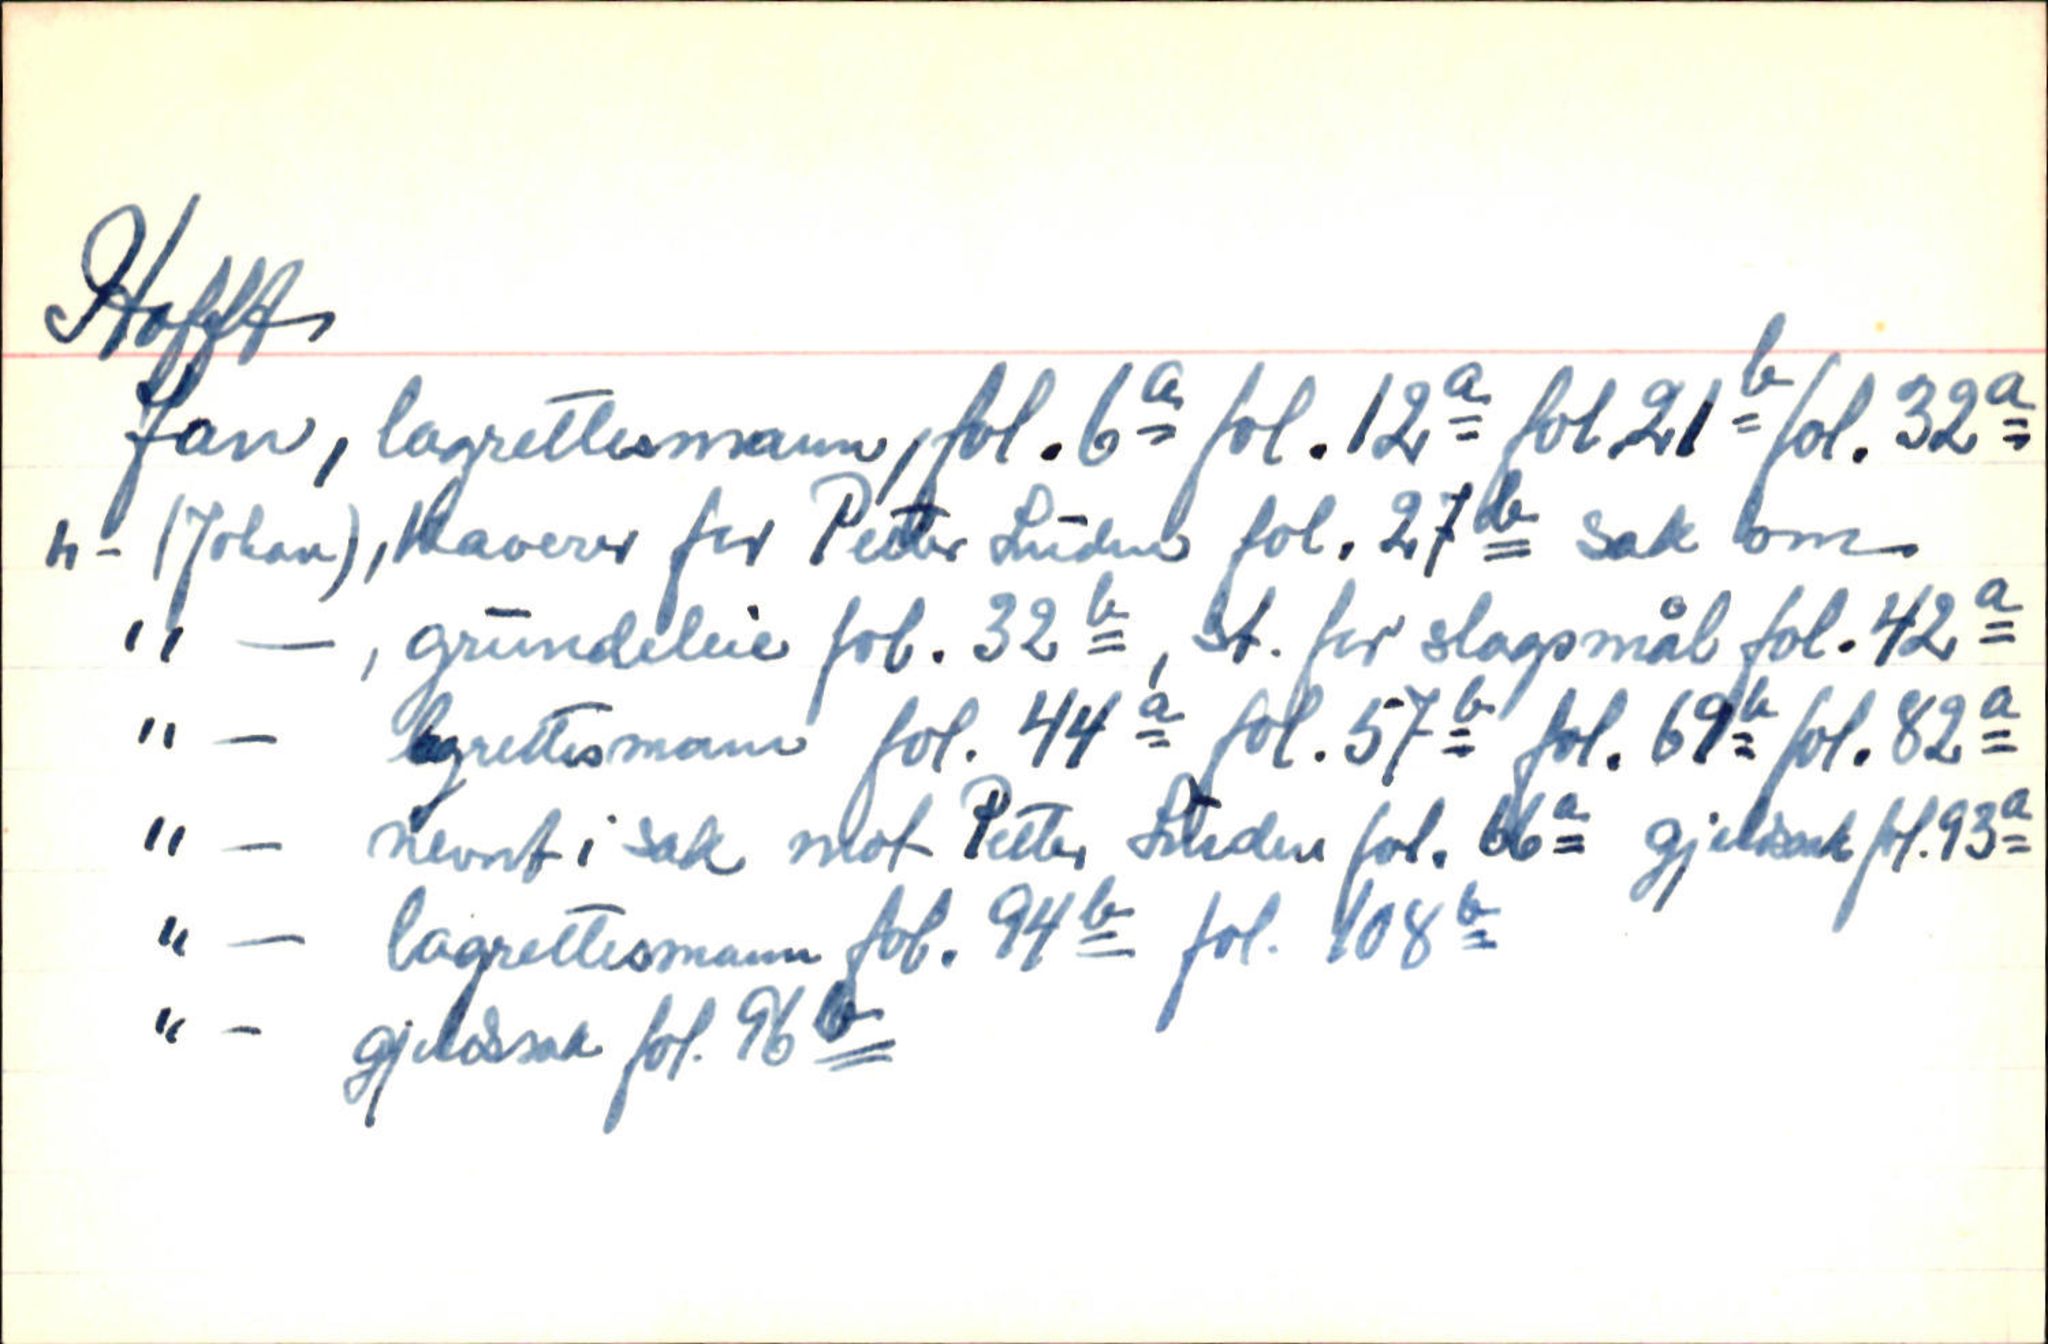 Hofft
Jan, lagrettesmann, fol. 6a fol. 12a fol 21b fol. 32a
" - (Johan), kaverer for Petter Lüden fol. 27b sak om
" — , gründeleie fol. 32b, st. for slagsmål fol. 42a
" — lagrettesmann fol. 44a fol. 57b fol. 69b fol. 82a
" — nevnt i sak mot Petter Lüden fol. 66a gjeldsak fol. 93a
" — lagrettesmann fol. 94b fol. 108b
" — gjeldssak fol. 96b